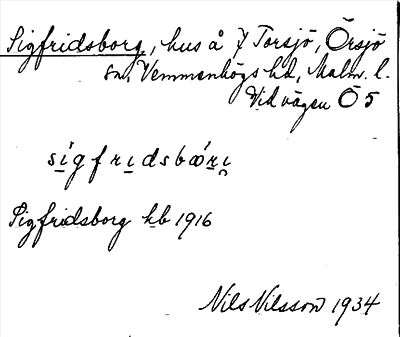 Sigfridsborg, hus å 7 Torsjö, Örsjö
sn, Vemmenhögs hd, Malm. l.
Vid vägen Ö 5
sígfrɪdsbǿrɪ
Sigfridsborg hb 1916
Nils Nilsson 1934